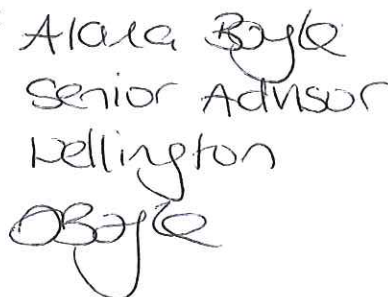 Alana Boyle
Senior Advisor
Wellington
ABoyle